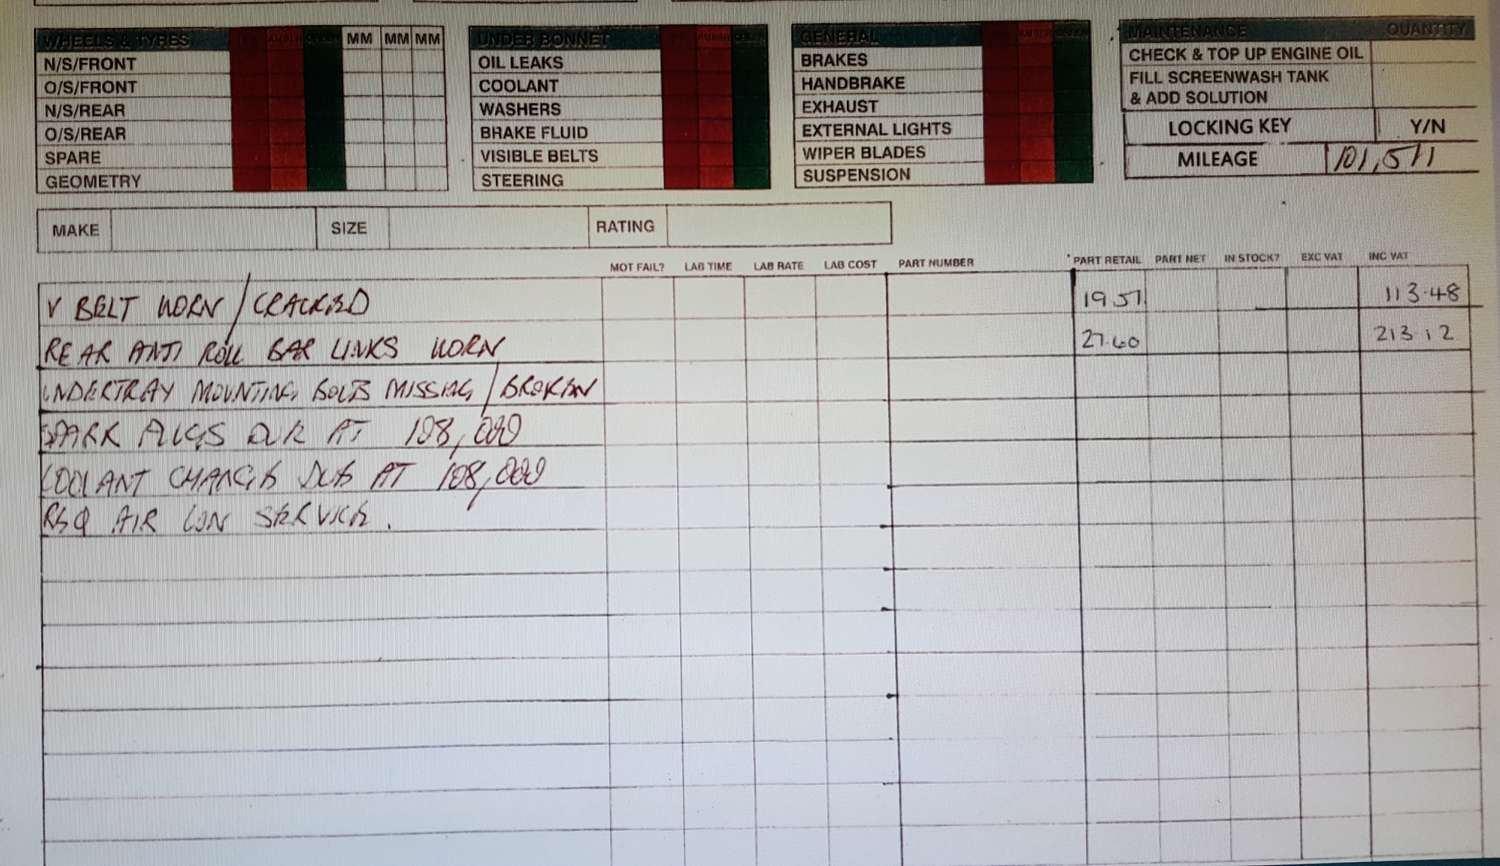 WHEELS & TYRES MM MM MM
N/S/FRONT
O/S/FRONT
N/S/REAR
O/S/REAR
SPARE
GEOMETRY
UNDER BONNET
OIL LEAKS
COOLANT
WASHERS
BRAKE FLUID
VISIBLE BELTS
STEERING
GENERAL
BRAKES
HANDBRAKE
EXHAUST
EXTERNAL LIGHTS
WIPER BLADES
SUSPENSION
MAINTENANCE QUANTITY
CHECK & TOP UP ENGINE OIL
FILL SCREENWASH TANK
& ADD SOLUTION
LOCKING KEY Y/N
MILEAGE 101,511
MAKE SIZE RATING
MOT FAIL? LAB TIME LAB RATE LAB COST PART NUMBER PART RETAIL PART NET IN STOCK? EXC VAT INC VAT
V BELT WORN / CRACKED 19 51 113.48
REAR ANTI ROLL BAR LINKS WORN 27.60 213.12
UNDERTRAY MOUNTING BOLTS MISSING / BROKEN
SPARK PLUGS DUE AT 108,000
COOLANT CHANGE DUE AT 108,000
REQ AIR CON SERVICE.